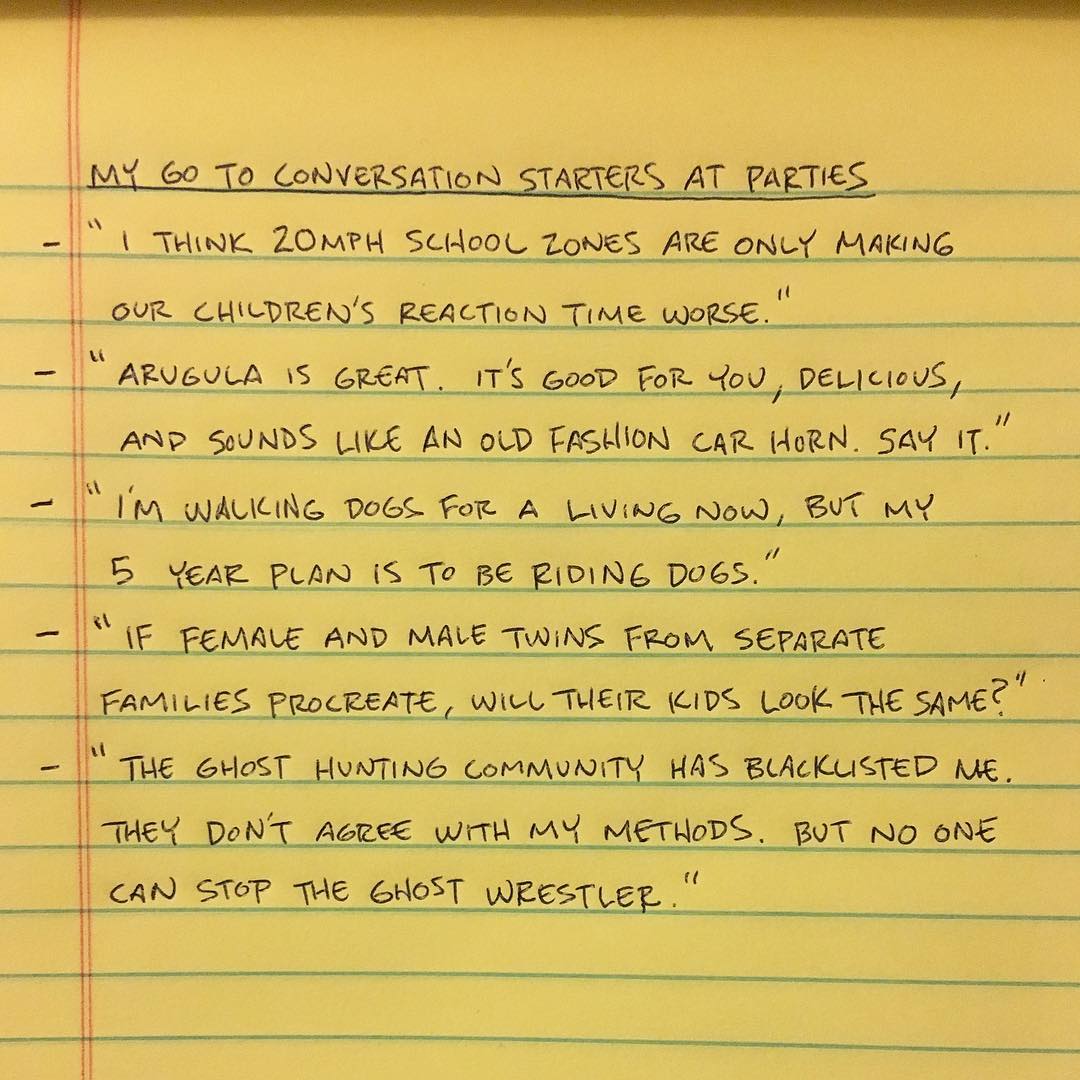 MY GO TO CONVERSATION STARTERS AT PARTIES
- "I THINK 20MPH SCHOOL ZONES ARE ONLY MAKING
OUR CHILDREN'S REACTION TIME WORSE."
- "ARUGULA IS GREAT. IT'S GOOD FOR YOU, DELICIOUS,
AND SOUNDS LIKE AN OLD FASHION CAR HORN. SAY IT."
- "I'M WALKING DOGS FOR A LIVING NOW, BUT MY
5 YEAR PLAN IS TO BE RIDING DOGS."
- "IF FEMALE AND MALE TWINS FROM SEPARATE
FAMILIES PROCREATE, WILL THEIR KIDS LOOK THE SAME?"
- "THE GHOST HUNTING COMMUNITY HAS BLACKLISTED ME.
THEY DON'T AGREE WITH MY METHODS. BUT NO ONE
CAN STOP THE GHOST WRESTLER."